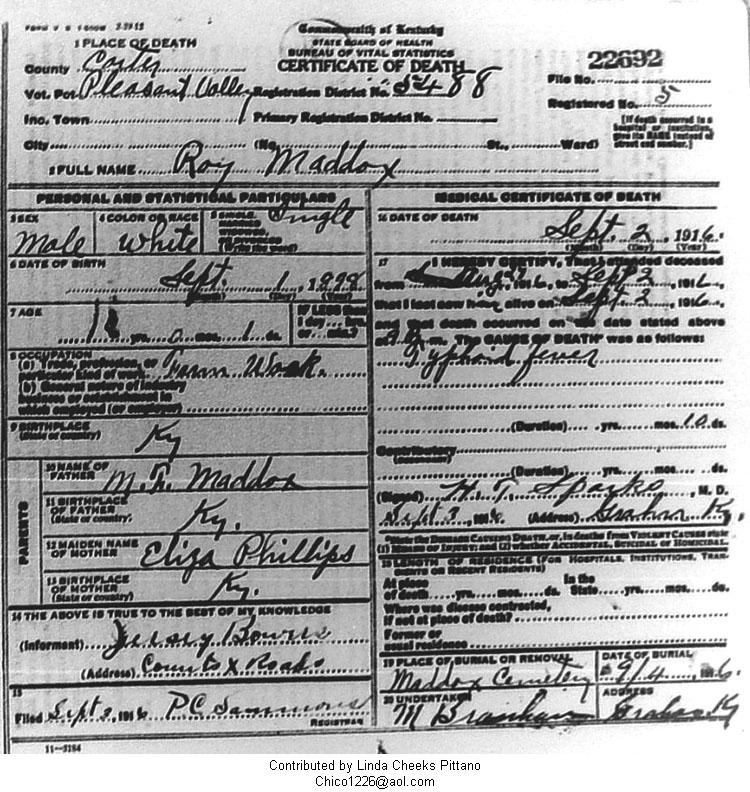 Commonwealth of Kentucky
STATE BOARD OF HEALTH
BUREAU OF VITAL STATISTICS
CERTIFICATE OF DEATH
22692
1 PLACE OF DEATH
County Carter
Vot. Pct Pleasant Valley Registration District No. 5488
File No.
Registered No. 5
Inc. Town Primary Registration District No.
City (No. St., Ward)
[If death occurred in a hospital or institution, give its NAME instead of street and number.]
2 FULL NAME Roy Maddox
PERSONAL AND STATISTICAL PARTICULARS
3 SEX
Male
4 COLOR OR RACE
White
5 SINGLE,
Single
6 DATE OF BIRTH
Sept. 1, 1898
(Month) (Day) (Year)
7 AGE
18 yrs. 0 mos. 1 ds.
IF LESS than 1 day
8 OCCUPATION
(a) Trade, profession, or particular kind of work Farm Work.
(b) General nature of industry
business or establishment in
which employed (or employer)
9 BIRTHPLACE
(State or country) Ky
PARENTS
10 NAME OF FATHER M. Maddox
11 BIRTHPLACE OF FATHER
(State or country) Ky.
12 MAIDEN NAME OF MOTHER Eliza Phillips
13 BIRTHPLACE OF MOTHER
(State or country) Ky.
14 THE ABOVE IS TRUE TO THE BEST OF MY KNOWLEDGE
(Informant)
(Address) Counts X Roads
15
Filed Sept 3, 1916 P C Sammons
REGISTRAR
11-3184
MEDICAL CERTIFICATE OF DEATH
16 DATE OF DEATH
Sept. 2, 1916.
(Month) (Day) (Year)
17 I HEREBY CERTIFY, That I attended deceased
from Aug 27, 1916, to Sept 2, 1916,
that I last saw him alive on Sept 2, 1916,
and that death occurred on the date stated above
at m. The CAUSE OF DEATH* was as follows:
Typhoid fever
(Duration) yrs. mos. 10 ds.
Contributory
(Duration) yrs. mos. ds.
(Signed) H. T. Sparks, M. D.
Sept 3, 1916 (Address) Grahn Ky.
*State the DISEASE CAUSING DEATH, or, in deaths from VIOLENT CAUSES state
(1) MEANS OF INJURY; and (2) whether ACCIDENTAL, SUICIDAL or HOMICIDAL
18 LENGTH OF RESIDENCE (FOR HOSPITALS, INSTITUTIONS, TRANSIENTS OR RECENT RESIDENTS)
At place of death yrs. mos. ds. In the State yrs. mos. ds.
Where was disease contracted,
if not at place of death?
Former or
usual residence
19 PLACE OF BURIAL OR REMOVAL
Maddox Cemetery
DATE OF BURIAL
9/4, 1916.
20 UNDERTAKER
M Branham
ADDRESS
Grahn Ky
Contributed by Linda Cheeks Pittano
Chico1226@aol.com